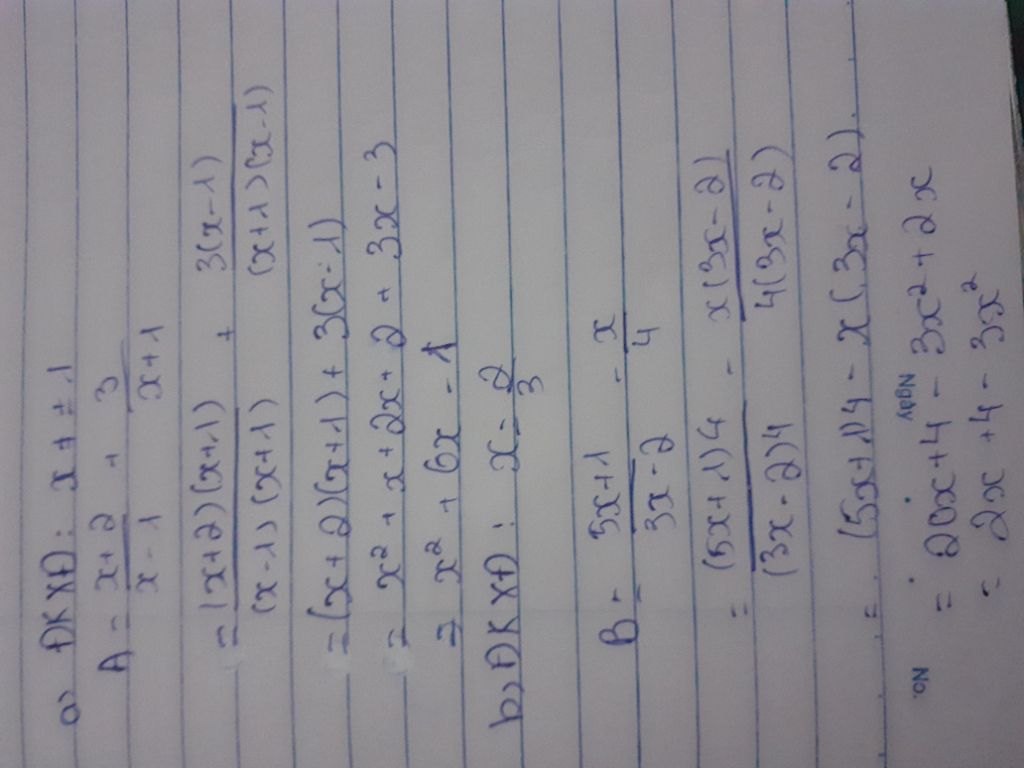 a) ĐKXĐ: x ≠ ± 1
A = x+2/x-1 + 3/x+1
= (x+2)(x+1)/(x-1)(x+1) + 3(x-1)/(x+1)(x-1)
= (x+2)(x+1) + 3(x-1)
= x² + x + 2x + 2 + 3x - 3
= x² + 6x - 1
b) ĐKXĐ: x = 2/3
B = 5x+1/3x-2 - x/4
= (5x+1)4/(3x-2)4 - x(3x-2)/4(3x-2)
= (5x+1)4 - x(3x-2).
No. Ngày
= 20x+4 - 3x² + 2x
= 2x + 4 - 3x²